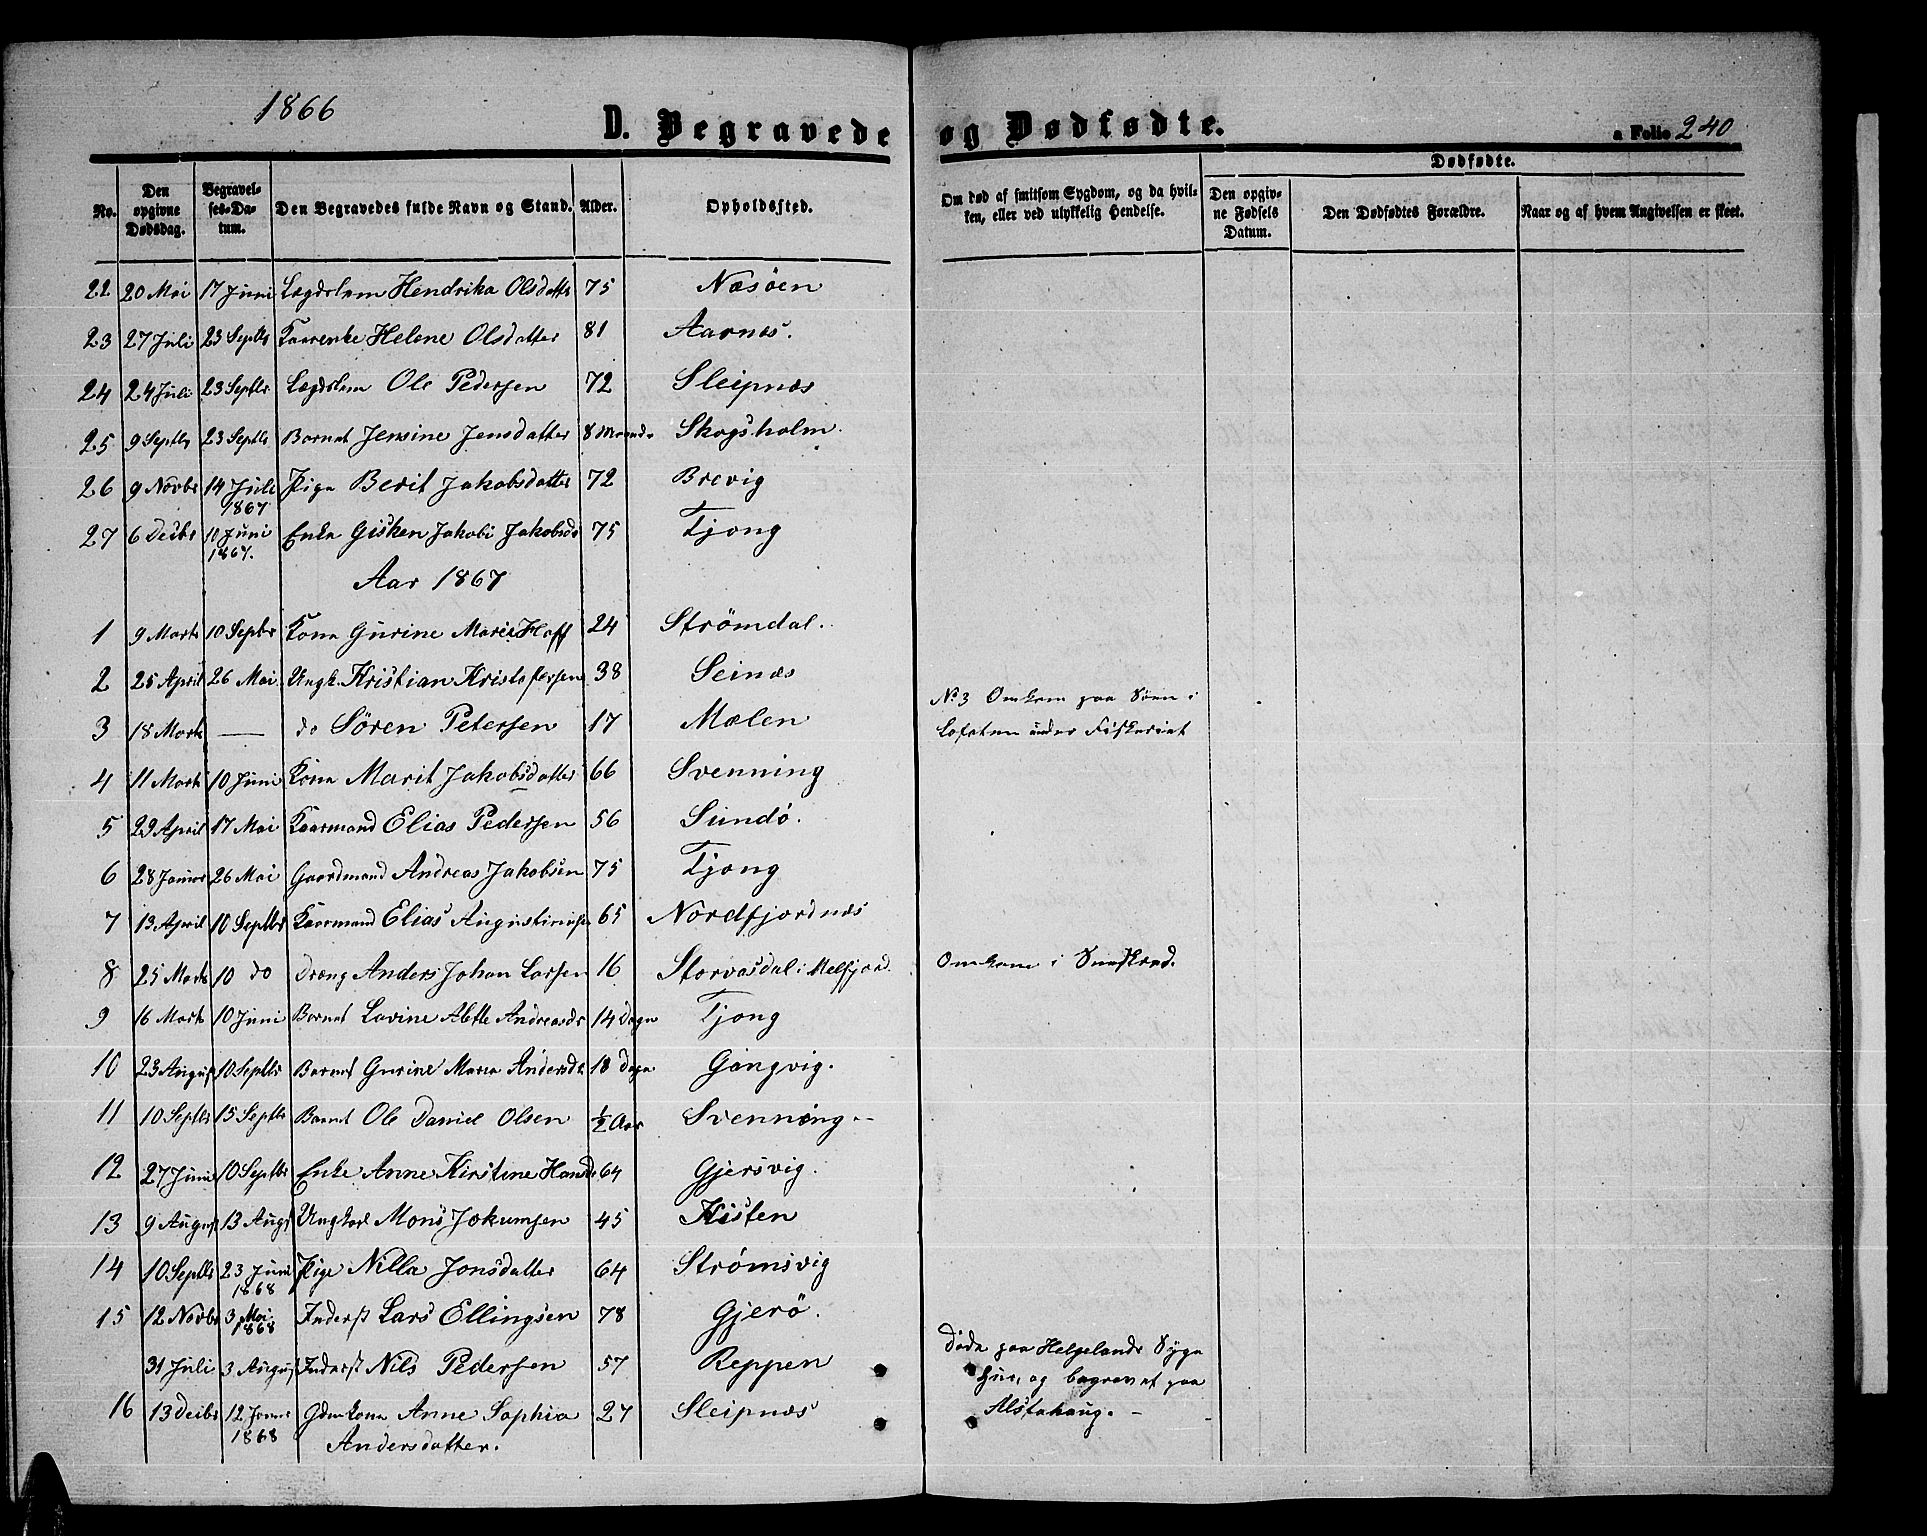 1866
D. Begravede og Dødfødte.
a Folio 240
No.
Den opgivne Dødsdag.
Begravelses-Datum.
Den Begravedes fulde Navn og Stand.
Alder.
Opholdssted.
Om død af smitsom Sygdom, og da hvilken, eller ved ulykkelig Hendelse.
Dødfødte.
Den opgivne Fødsels Datum.
Den Dødfødtes Forældre.
Naar og af hvem Angivelsen er skeet.
22 20 Mai 17 Juni Lægdslem Hendrika Olsdatter 75 Næsöen
23 27 Juli 23 Septbr Kaarenke Helene Olsdatter 81 Aarnes.
24 24 Juli 23 Septbr Lægdslem Ole Pedersen 72 Sleipnæs
25 9 Septbr 23 Septbr Barnet Jensine Jensdatter 8 Maand. Skogsholm.
26 9 Novbr 14 Juli 1867 Pige Berit Jakobsdatter 72 Brevig
27 6 Decbr 10 Juni 1867. Enke Gisken Jakobi Jakobsd. 75 Tjong
Aar 1867
1 9 Marts 10 Septbr Kone Gurine Marie Hoff 24 Strömdal.
2 25 April 26 Mai Ungk. Kristian Kristofersen 38 Seinæs
3 18 Marts — do Sören Petersen 17 Mælen No 3 Omkom paa Söen i
Lofoten under Fiskeriet
4 11 Marts 10 Juni Kone Marit Jakobsdatter 66 Svenning
5 29 April 17 Mai Kaarmand Elias Pedersen 56 Sundö.
6 28 Januar 26 Mai Gaardmand Andreas Jakobsen 75 Tjong
7 13 April 10 Septbr Kaarmand Elias Augustinusen 65 Nordfjordnæs
8 25 Marts 10 do Dreng Anders Johan Larsen 16 Storvasdal i Melfjord. Omkom i Sneskred.
9 16 Marts 10 Juni Barnet Lovine Abthe Andreasdr 14 Dage Tjong
10 23 August 10 Septbr Barnet Gurine Maria Andersdr. 18 Dage Gangvig.
11 10 Septbr 15 Septbr Barnet Ole Daniel Olsen ½ Aar Svenning.-
12 27 Juni 10 Septbr Enke Anne Kirstine Hansd. 64 Gjersvig.
13 9 August 13 Augst Ungkarl Mons Jokumsen 45 Kisten
14 10 Septbr 23 Juni 1868 Pige Nilla Jonsdatter 64 Strömsvig
15 12 Novbr 3 Mai 1868 Inderst Lars Ellingsen 78 Gjerö.
31 Juli 3 August Inderst Nils Pedersen 57 Reppen Döde paa Helgelands Syge
Huus, og begravet paa
Alstahaug. -
16 13 Decbr 12 Januar 1868 Gdmkone Anne Sophia 27 Sleipnæs
Andersdatter.